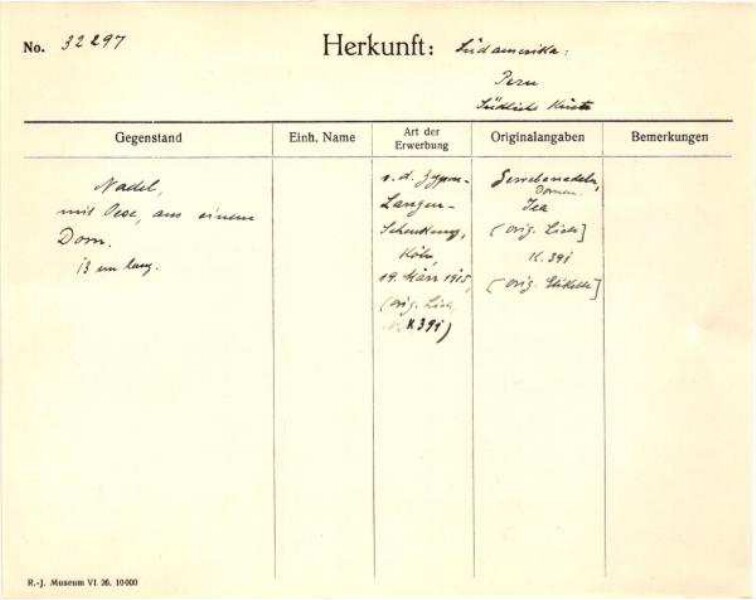 No. 32297
Herkunft: Südamerika:
Peru
Südliche Küste
Gegenstand
Einh. Name
Art der Erwerbung
Originalangaben
Bemerkungen
Nadel,
mit Oese, aus einem
Dorn.
13 cm lang.
v. d. Zypen-
Langen-
Schenkung,
Köln,
19. März 1915,
(orig. Liste
K 39i)
Gewebenadeln,
Dornen.
Ica
(orig. Liste]
K. 39i
(orig. Etikette]
R.-J. Museum VI. 26. 10000